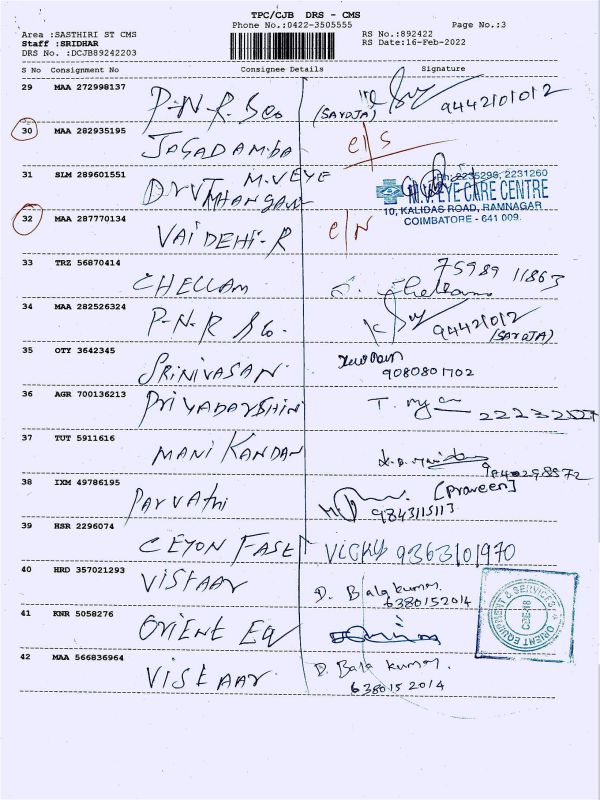 TPC/CJB DRS - CMS
Phone No.:0422-3505555
Page No.:3
Area :SASTHIRI ST CMS
RS No.:892422
Staff :SRIDHAR
RS Date:16-Feb-2022
DRS No. :DCJB89242203
S No Consignment No Consignee Details Signature
29 MAA 272998137
P-N-R. & Co
(SAROJA)
9442101012
30 MAA 282935195
JAGADAMBA
31 SLM 289601551
M.V EYE
Ph: 2235296, 2231260
M.V. EYE CARE CENTRE
10, KALIDAS ROAD, RAMNAGAR
COIMBATORE - 641 009.
32 MAA 287770134
VAIDEHI-R
33 TRZ 56870414
CHELLAM
75989 11863
34 MAA 282526324
P-N-R & Co.
94421012
(SAROJA)
35 OTY 3642345
SRINIVASAN
9080801702
36 AGR 700136213
PRIYADARSHINI
37 TUT 5911616
MANIKANDAN
38 IXM 49786195
Parvathi
[Praveen]
9843115113
39 HSR 2296074
CEYON FAST
Vicky 9363101970
40 HRD 357021293
VISTAAR
D. Balakumar
6380152014
41 KNR 5058276
ORIENT EQ
ORIENT EQUIPMENT & SERVICES
42 MAA 566836964
VISTAAR
D. Bala kumar.
638015 2014